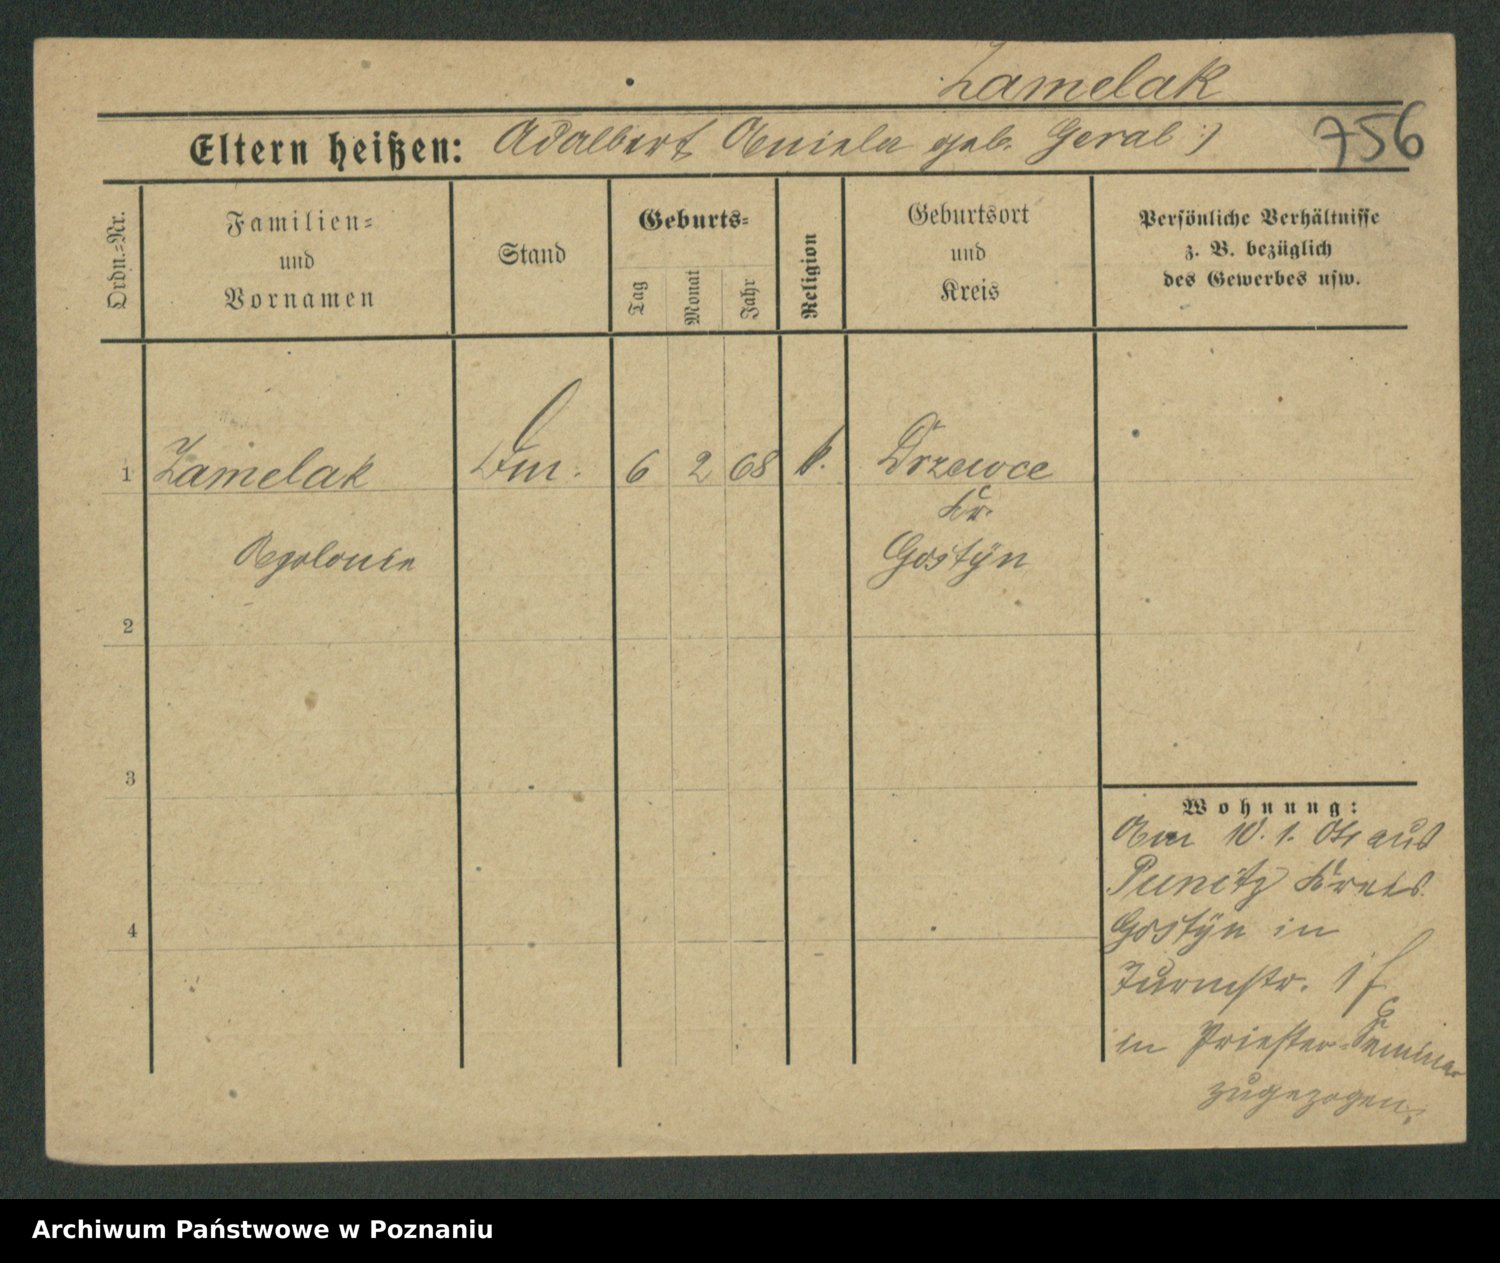 Zamelak
Eltern heißen: Adalbert Aniela geb. Geral :)
756
Ordn.=Nr.
Familien=
und
Vornamen
Stand
Geburts=
Tag
Monat
Jahr
Religion
Geburtsort
und
Kreis
Persönliche Verhältnisse
z. B. bezüglich
des Gewerbes usw.
1 Zamelak 6 2 68 k. Drzewce
Kr.
Apolonie Gostÿn
2
3
4
Wohnung:
Am 10. 1. aus
Punitz Kreis
Gostÿn in
Turmstr. 1
in Priester-Seminar
zugezogen.
Archiwum Państwowe w Poznaniu